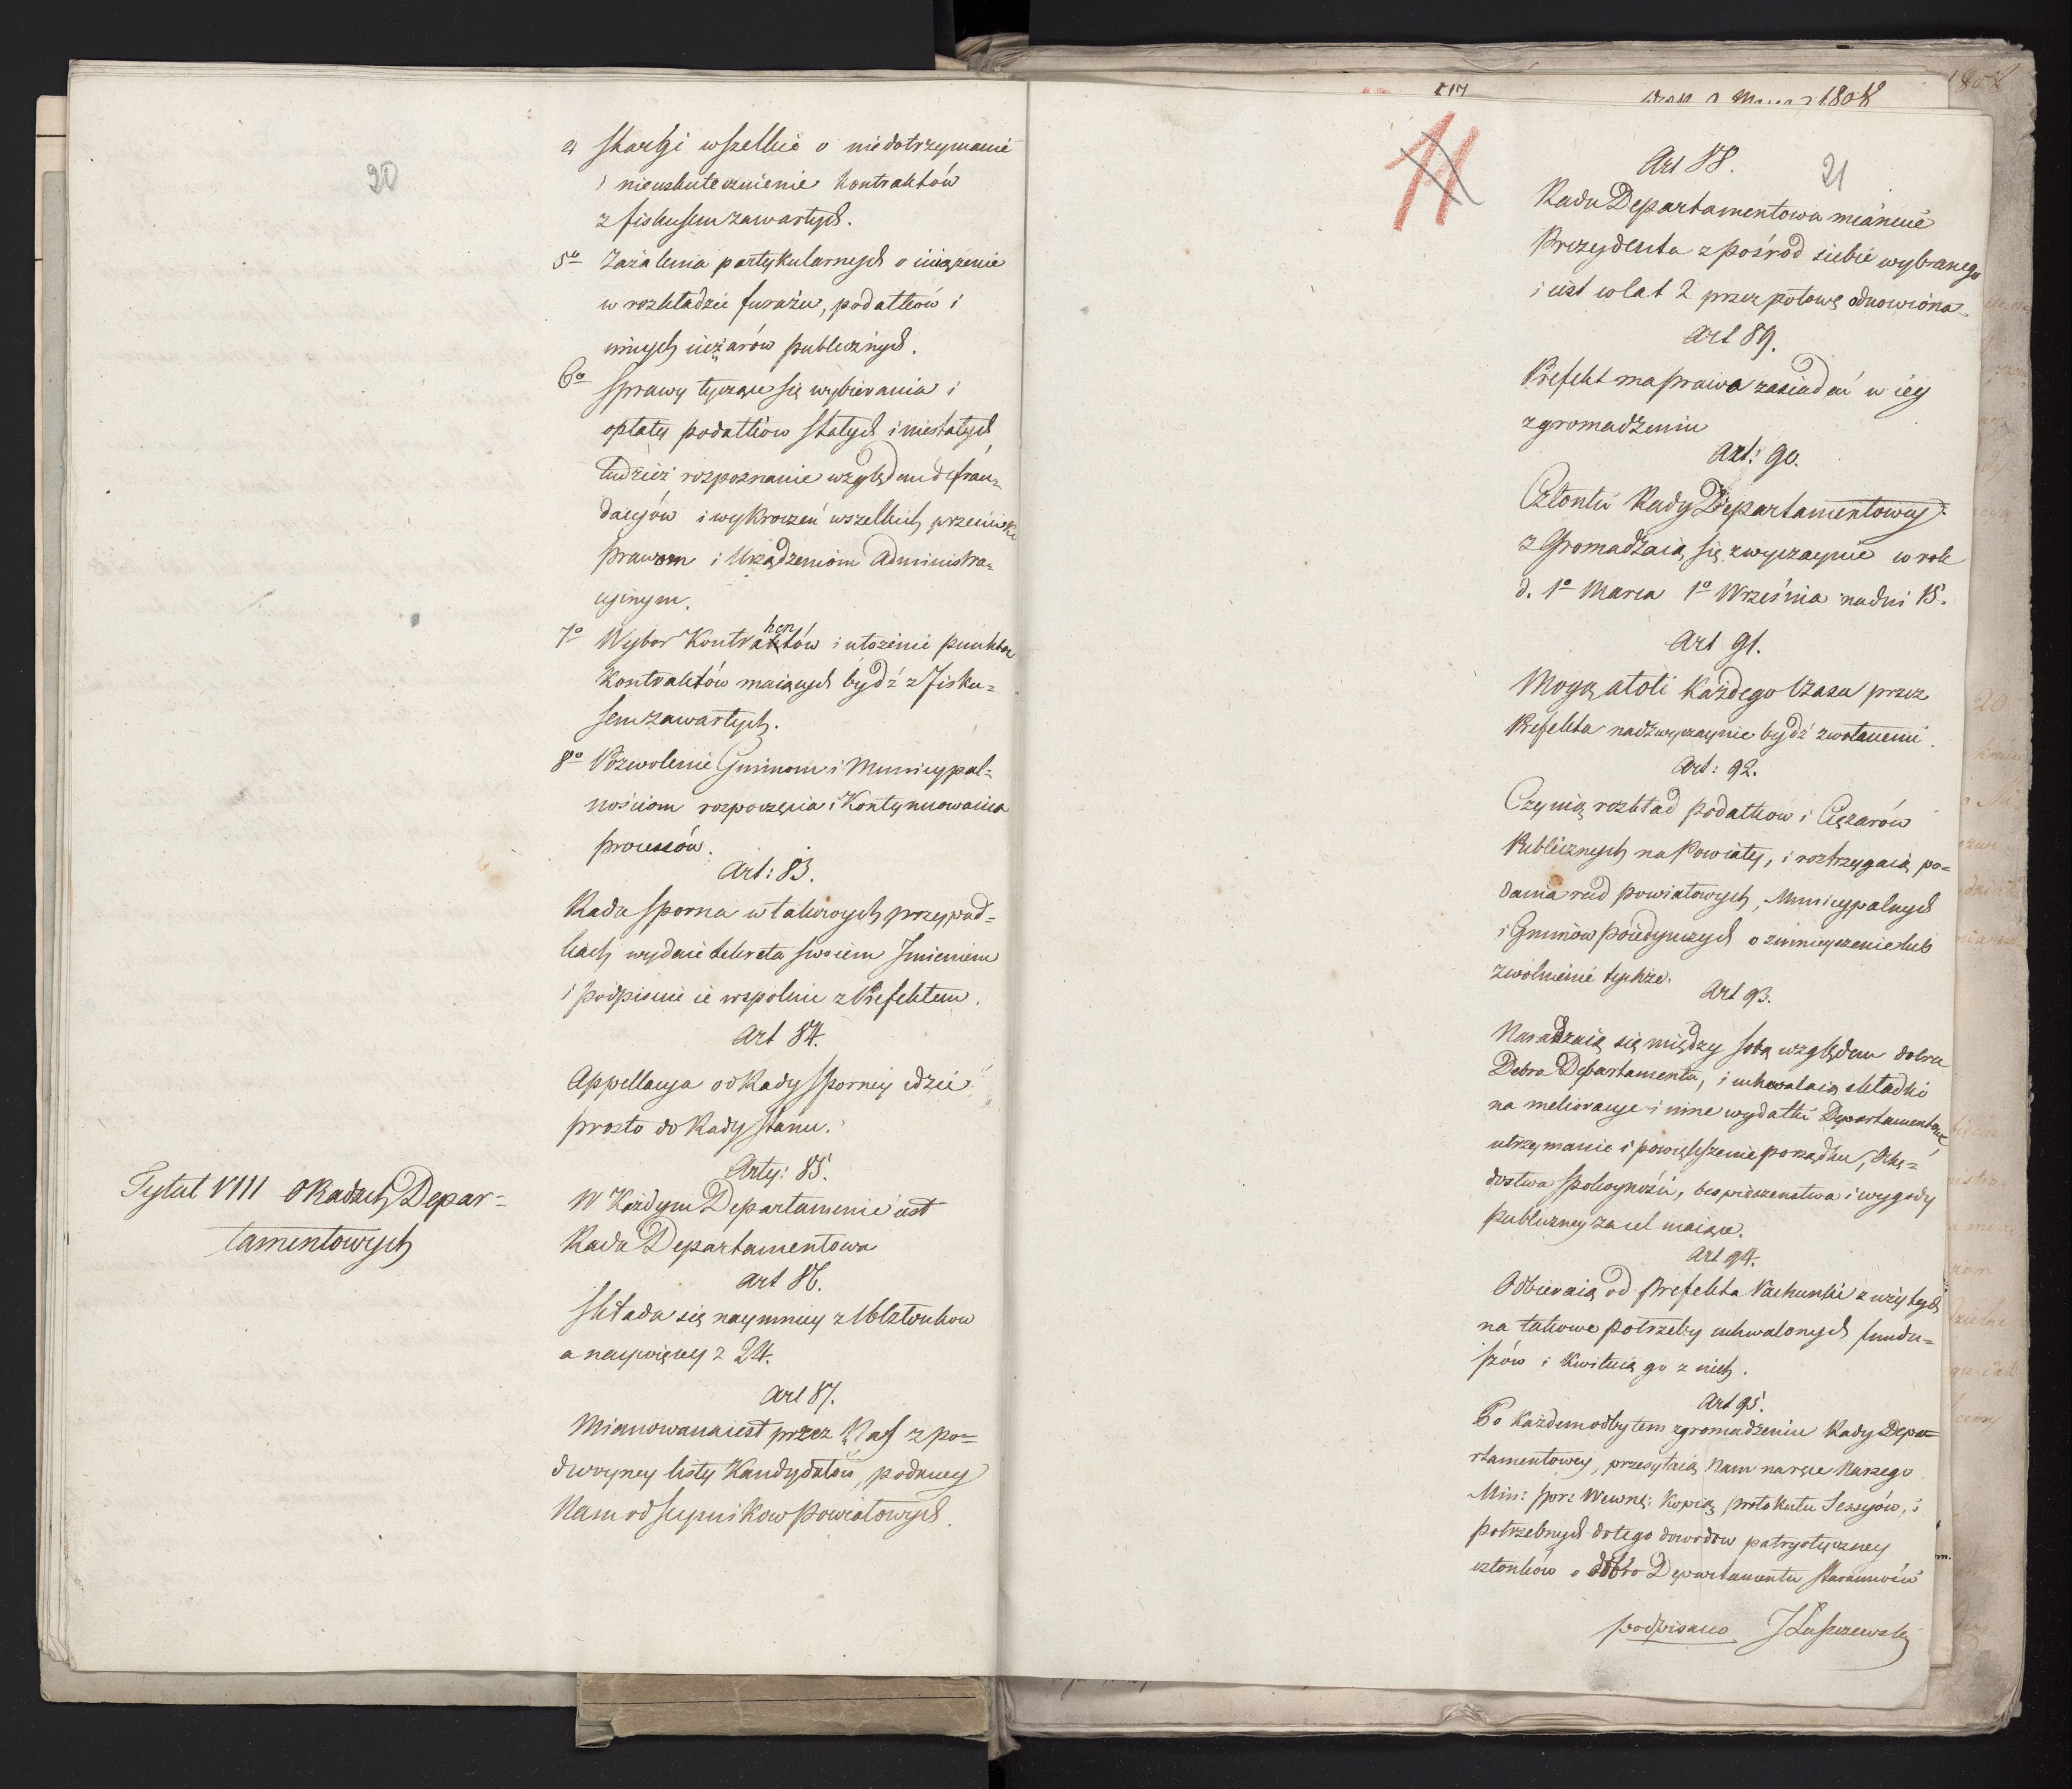 20
a skargi wszelkie o niedotrzymanie
i nieuskutecznienie kontraktów
z fiskusem zawartych.
5o Zażalenia partykularnych o uciążenie
w rozkładzie furażu, podatków i
innych ciężarów publicznych.
6o Sprawy tyczące się wybierania i
opłaty podatków stałych i niestałych
tudzież rozpoznanie względem defrau=
dacyów i wykroczeń wszelkich przeciwko
prawom i Urządzeniom Administra=
cyinym.
7o Wybor Kontrahentów i ułożenie punktow
Kontraktów maiących bydź z Fisku=
sem zawartych.
8o Pozwolenie Gminom i Municypal=
nościom rozpoczęcia i Kontynuowania
processów.
Art: 83.
Rada sporna w takowych przypad=
kach wydaie dekreta swoiem Imieniem
i podpisuie ie wspolnie z Prefektem.
Art 84.
Appellacya od Rady Sporney idzie
prosto do Rady Stanu.
Arty: 85.
Tytuł VIII O Radach Depar=
tamentowych
W Każdym Departamencie iest
Rada Departamentowa
Art 86.
Składa się naymniey z 16 członkow
a naywięcey z 24.
Art 87.
Mianowana iest przez Nas z po=
dwoyney listy Kandydatów, podaney
Nam od Seymikow Powiatowych.
117
1808
11
21
Art 88.
Rada Departamentowa mianuie
Prezydenta z pośrod siebie wybranego
i iest w lat 2 przez połowę odnowiona.
Art 89.
Prefekt ma prawo zasiadać w iey
zgromadzeniu
Art: 90.
Członki Rady Departamentowey
zgromadzaią się zwyczaynie w rok
d. 1o Marca 1o Września na dni 15.
Art 91.
Mogą atoli każdego czasu przez
Prefekta nadzwyczaynie bydź zwołanemi.
Art: 92.
Czynią rozkład podatkow i Ciężarów
Publicznych na Powiaty, i roztrzygaią po=
dania rad powiatowych, Municypalnych
i Gminów poiedynczych o zmnieyszenie lub
zwolnienie tychże.
Art 93.
Naradzaią się między sobą względem dobra
Dobra Departamentu, i uchwalaią składki
na melioracye i inne wydatki Departamentowe
utrzymanie i powiększenie porządku, Ochę=
dostwa spokoyności, bezpieczenstwa i wygody
publiczney za cel maiące.
Art 94.
Odbieraią od Prefekta Rachunki z użytych
na takowe potrzeby uchwalonych fundu=
szów i Kwituią go z nich.
Art 95.
Po każdem odbytem zgromadzeniu Rady Depa=
rtamentowey, przesyłaią Nam na ręce Naszego
Min: spr: Wewnę: Kopią protokułu Sessyów, i
potrzebnych do tego dowodow patryotyczney
członków o dobro Departamentu staranności
podpisano J Łuszczewski